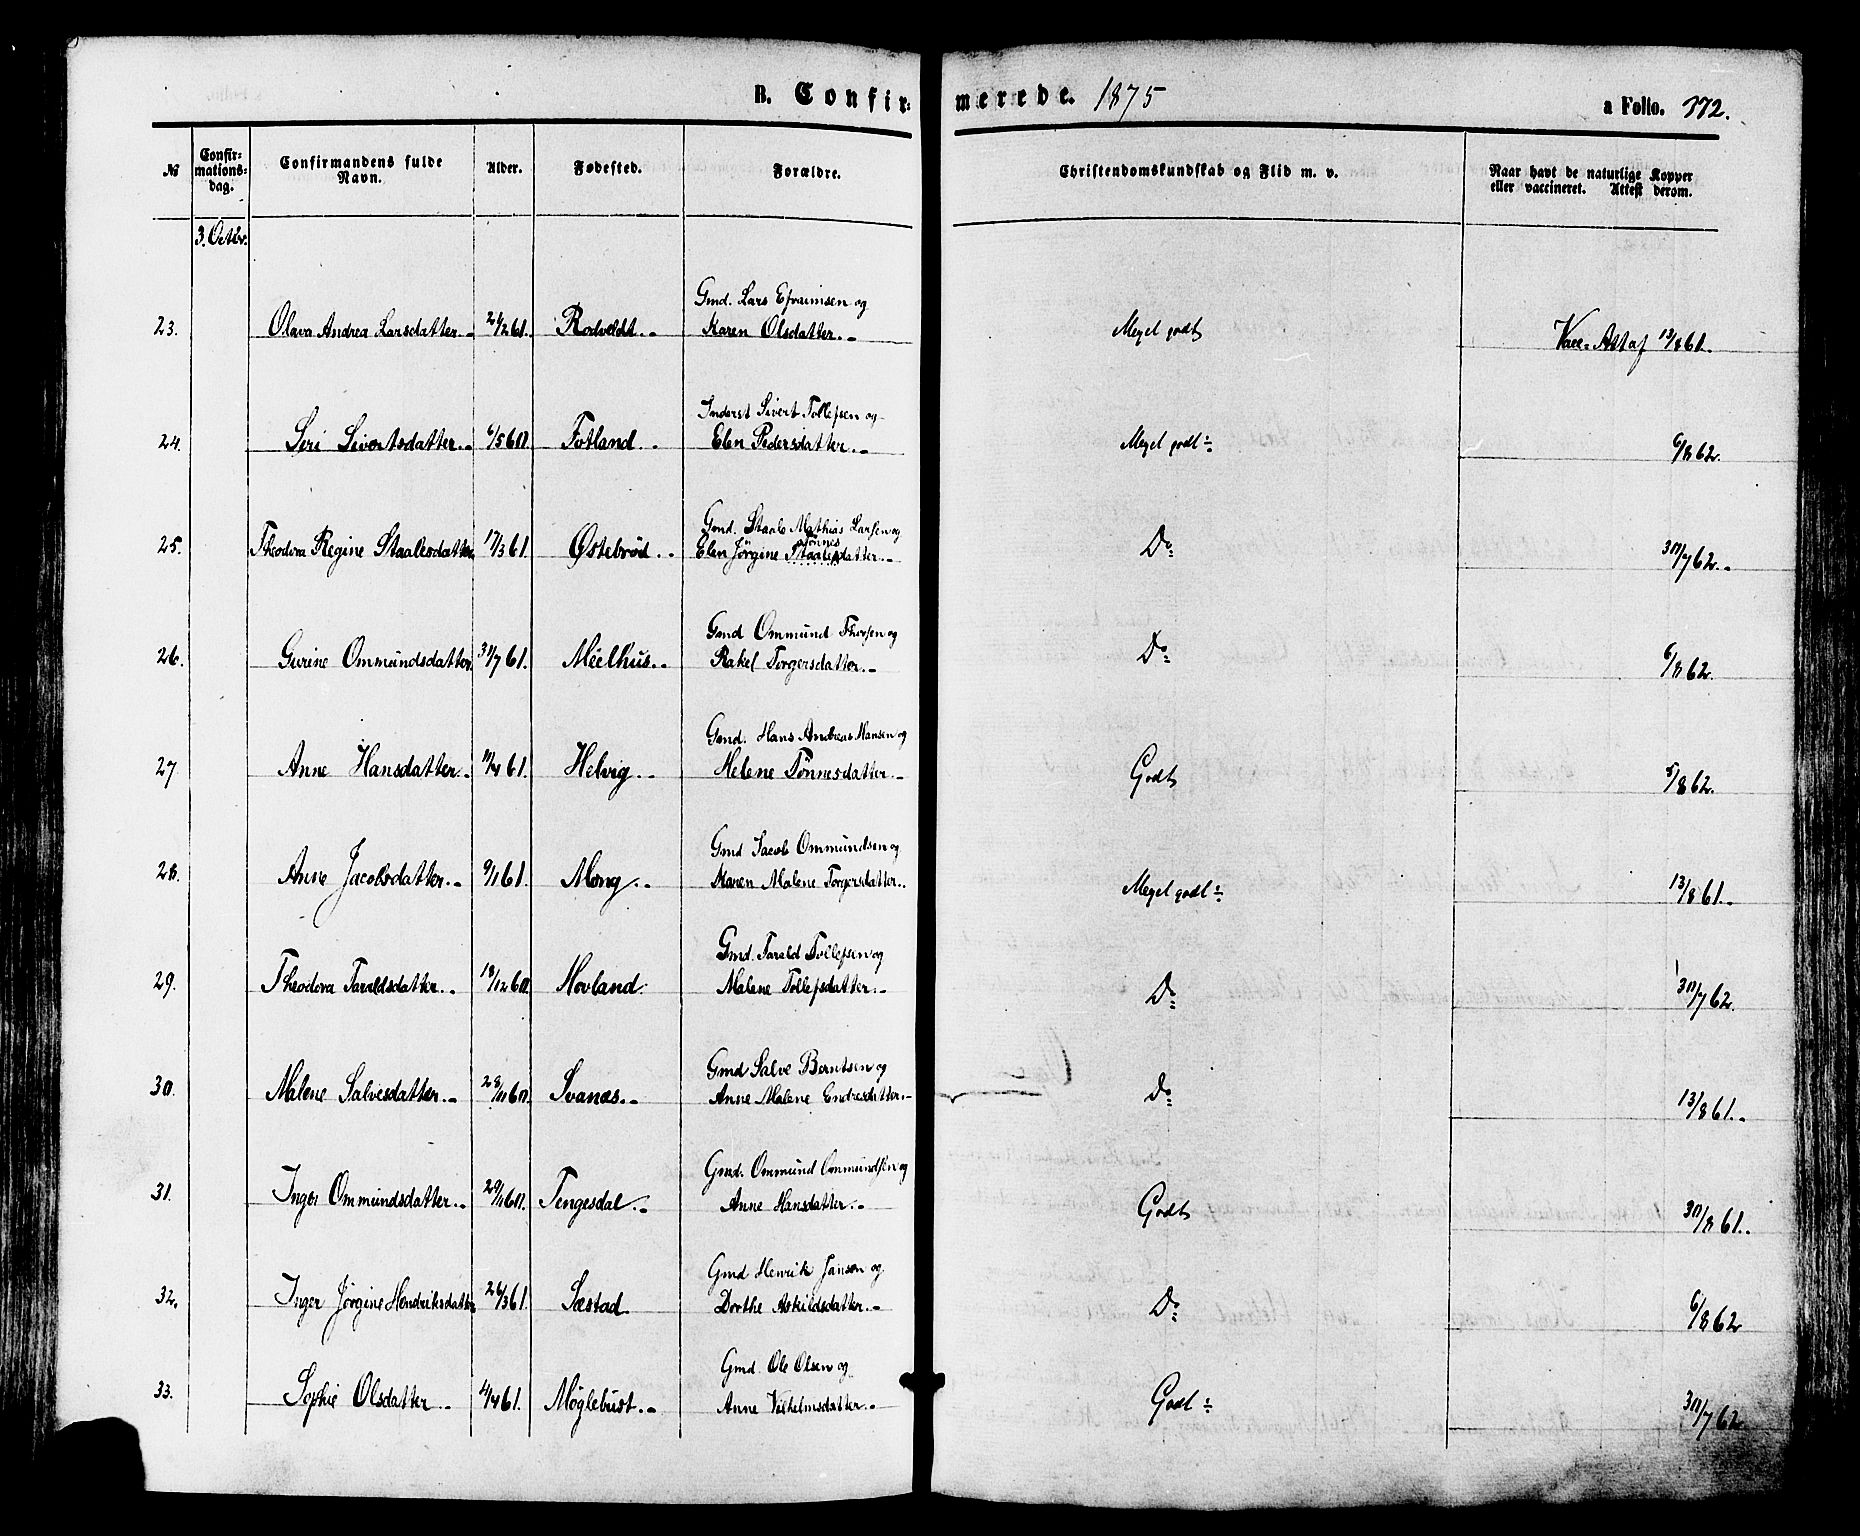 B. Confirmerede. 1875
a Folio. 372.
№
Confirmationsdag.
Confirmandens fulde Navn.
Alder.
Fødested.
Forældre.
Christendomskundskab og Flid m. v.
Naar havt de naturlige Kopper eller vaccineret. Attest derom.
3. Octbr.
Gmd. Lars Efraimsen og
23. Olava Andrea Larsdatter 2/2 61. Rodveldt Karen Olsdatter. Meget godt Vacc. Att af 13/8 61.
Inderst Sivert Tollefsen og
24. Siri Sivertsdatter 6/5 60. Fotland Elen Pedersdatter. Meget godt 6/8 62.
Gmd. Staale Mathias Larsen og
Tønnes
25. Theodora Regine Staalesdatter 17/3 61. Østebrød Elen Jörgine Staalesdatter. Do 30/7 62.
Gmd Ommund Thorsen og
26. Gurine Ommundsdatter 31/7 61. Meelhus Rakel Torgersdatter. Do 6/8 62.
Gmd. Hans Andreas Hansen og
27 Anne Hansdatter 10/4 61. Helvig Helene Tönnesdatter. Godt 5/8 62.
Gmd Jacob Ommundsen og
28. Anne Jacobsdatter 9/1 61. Mong Karen Malene Torgersdatter. Meget godt 13/8 61.
Gmd. Tarald Tollefsen og
29. Theodora Taraldsdatter 18/12 60. Hovland Malene Tollefsdatter. Do 30/7 62.
Gmd Salve Berntsen og
30. Malene Salvesdatter 28/11 60. Svanæs Anne Malene Endresdatter. Do 13/8 61.
Gmd. Ommund Ommundsen og
31. Inger Ommundsdatter 29/11 60. Tengesdal Anne Hansdatter. Godt 30/8 61.
Gmd Henrik Jansen og
32. Inger Jörgine Hendriksdatter 26/3 61. Sæstad Dorthe Askildsdatter. Do 6/8 62
Gmd. Ole Olsen og
33. Sophie Olsdatter 4/4 61. Møglebust Anne Vilhelmsdatter. Godt 30/7 62